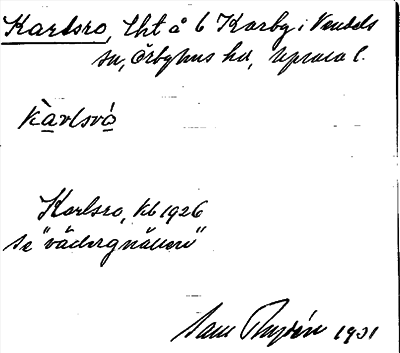 Karlsro, lht å 6 Karby i Vendels
sn, Örbyhus hd, Uppsala l.
kàvlsvó
Karlsro, kb 1926
se "vädergnällen"
Sam Rydén 1931